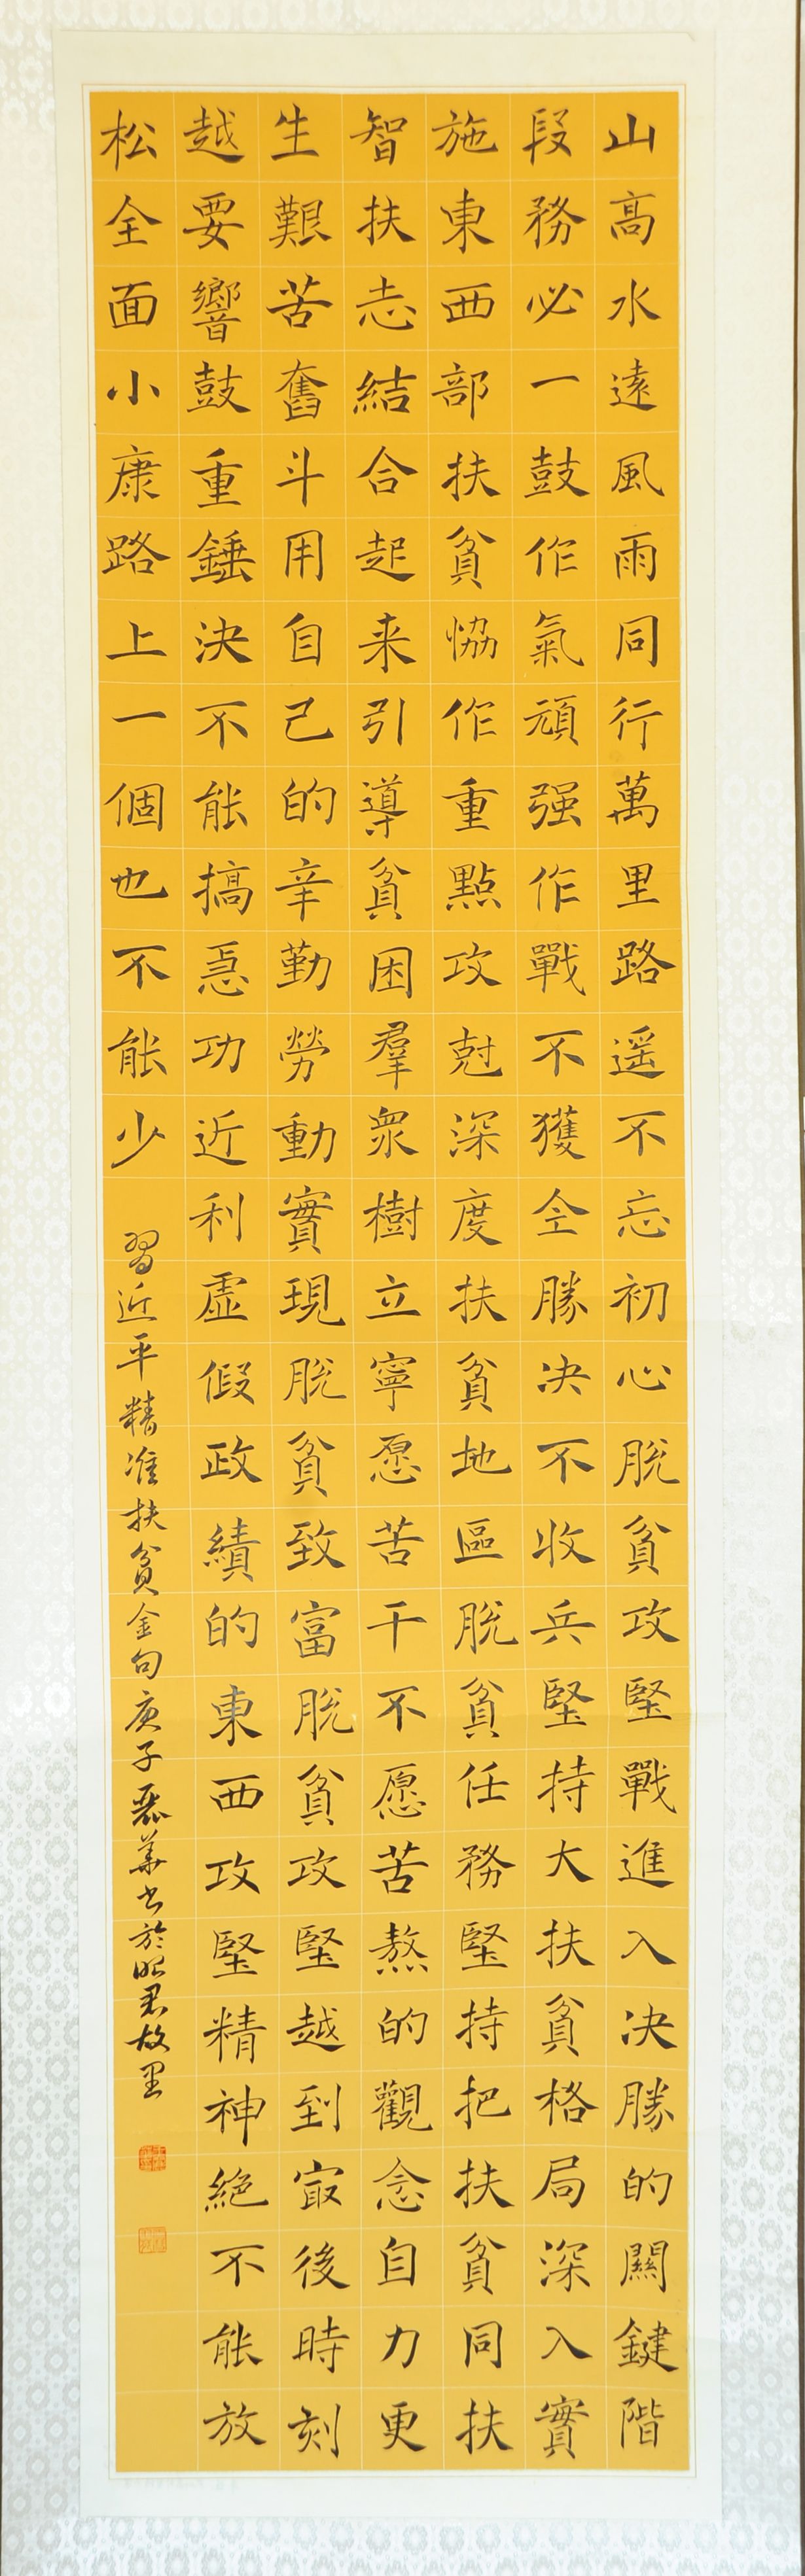 山高水遠風雨同行萬里路遥不忘初心脫貧攻堅戰進入决勝的關鍵階
段務必一鼓作氣頑强作戰不獲全勝决不收兵堅持大扶貧格局深入實
施東西部扶貧恊作重點攻尅深度扶貧地區脫貧任務堅持把扶貧同扶
智扶志結合起来引導貧困羣衆樹立寧愿苦干不愿苦熬的觀念自力更
生艱苦奮斗用自己的辛勤勞動實現脫貧致富脫貧攻堅越到㝡後時刻
越要響鼓重錘决不能搞急功近利虛假政績的東西攻堅精神絕不能放
松全面小康路上一個也不能少
習近平精准扶貧金句庚子麗華书於昭君故里